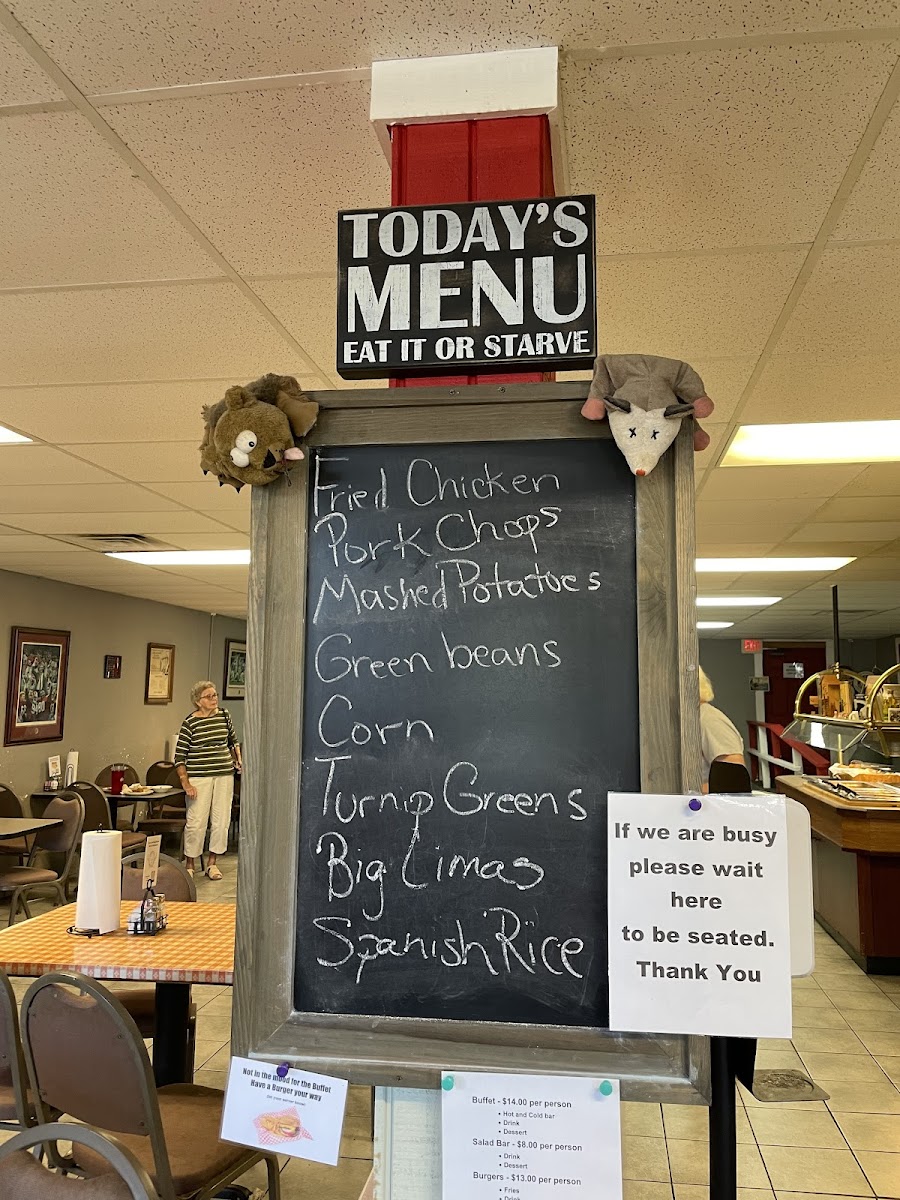 TODAY'S
MENU
EAT IT OR STARVE
Fried Chicken
Pork Chops
Mashed Potatoes
Green beans
Corn
Turnip Greens
Big Limas
Spanish Rice
If we are busy
please wait
here
to be seated.
Thank You
Not in the mood for the Buffet
Have a Burger your way
Buffet - $14.00 per person
• Hot and Cold bar
• Drink
• Dessert
Salad Bar - $8.00 per person
• Drink
• Dessert
Burgers - $13.00 per person
• Fries
• Drink